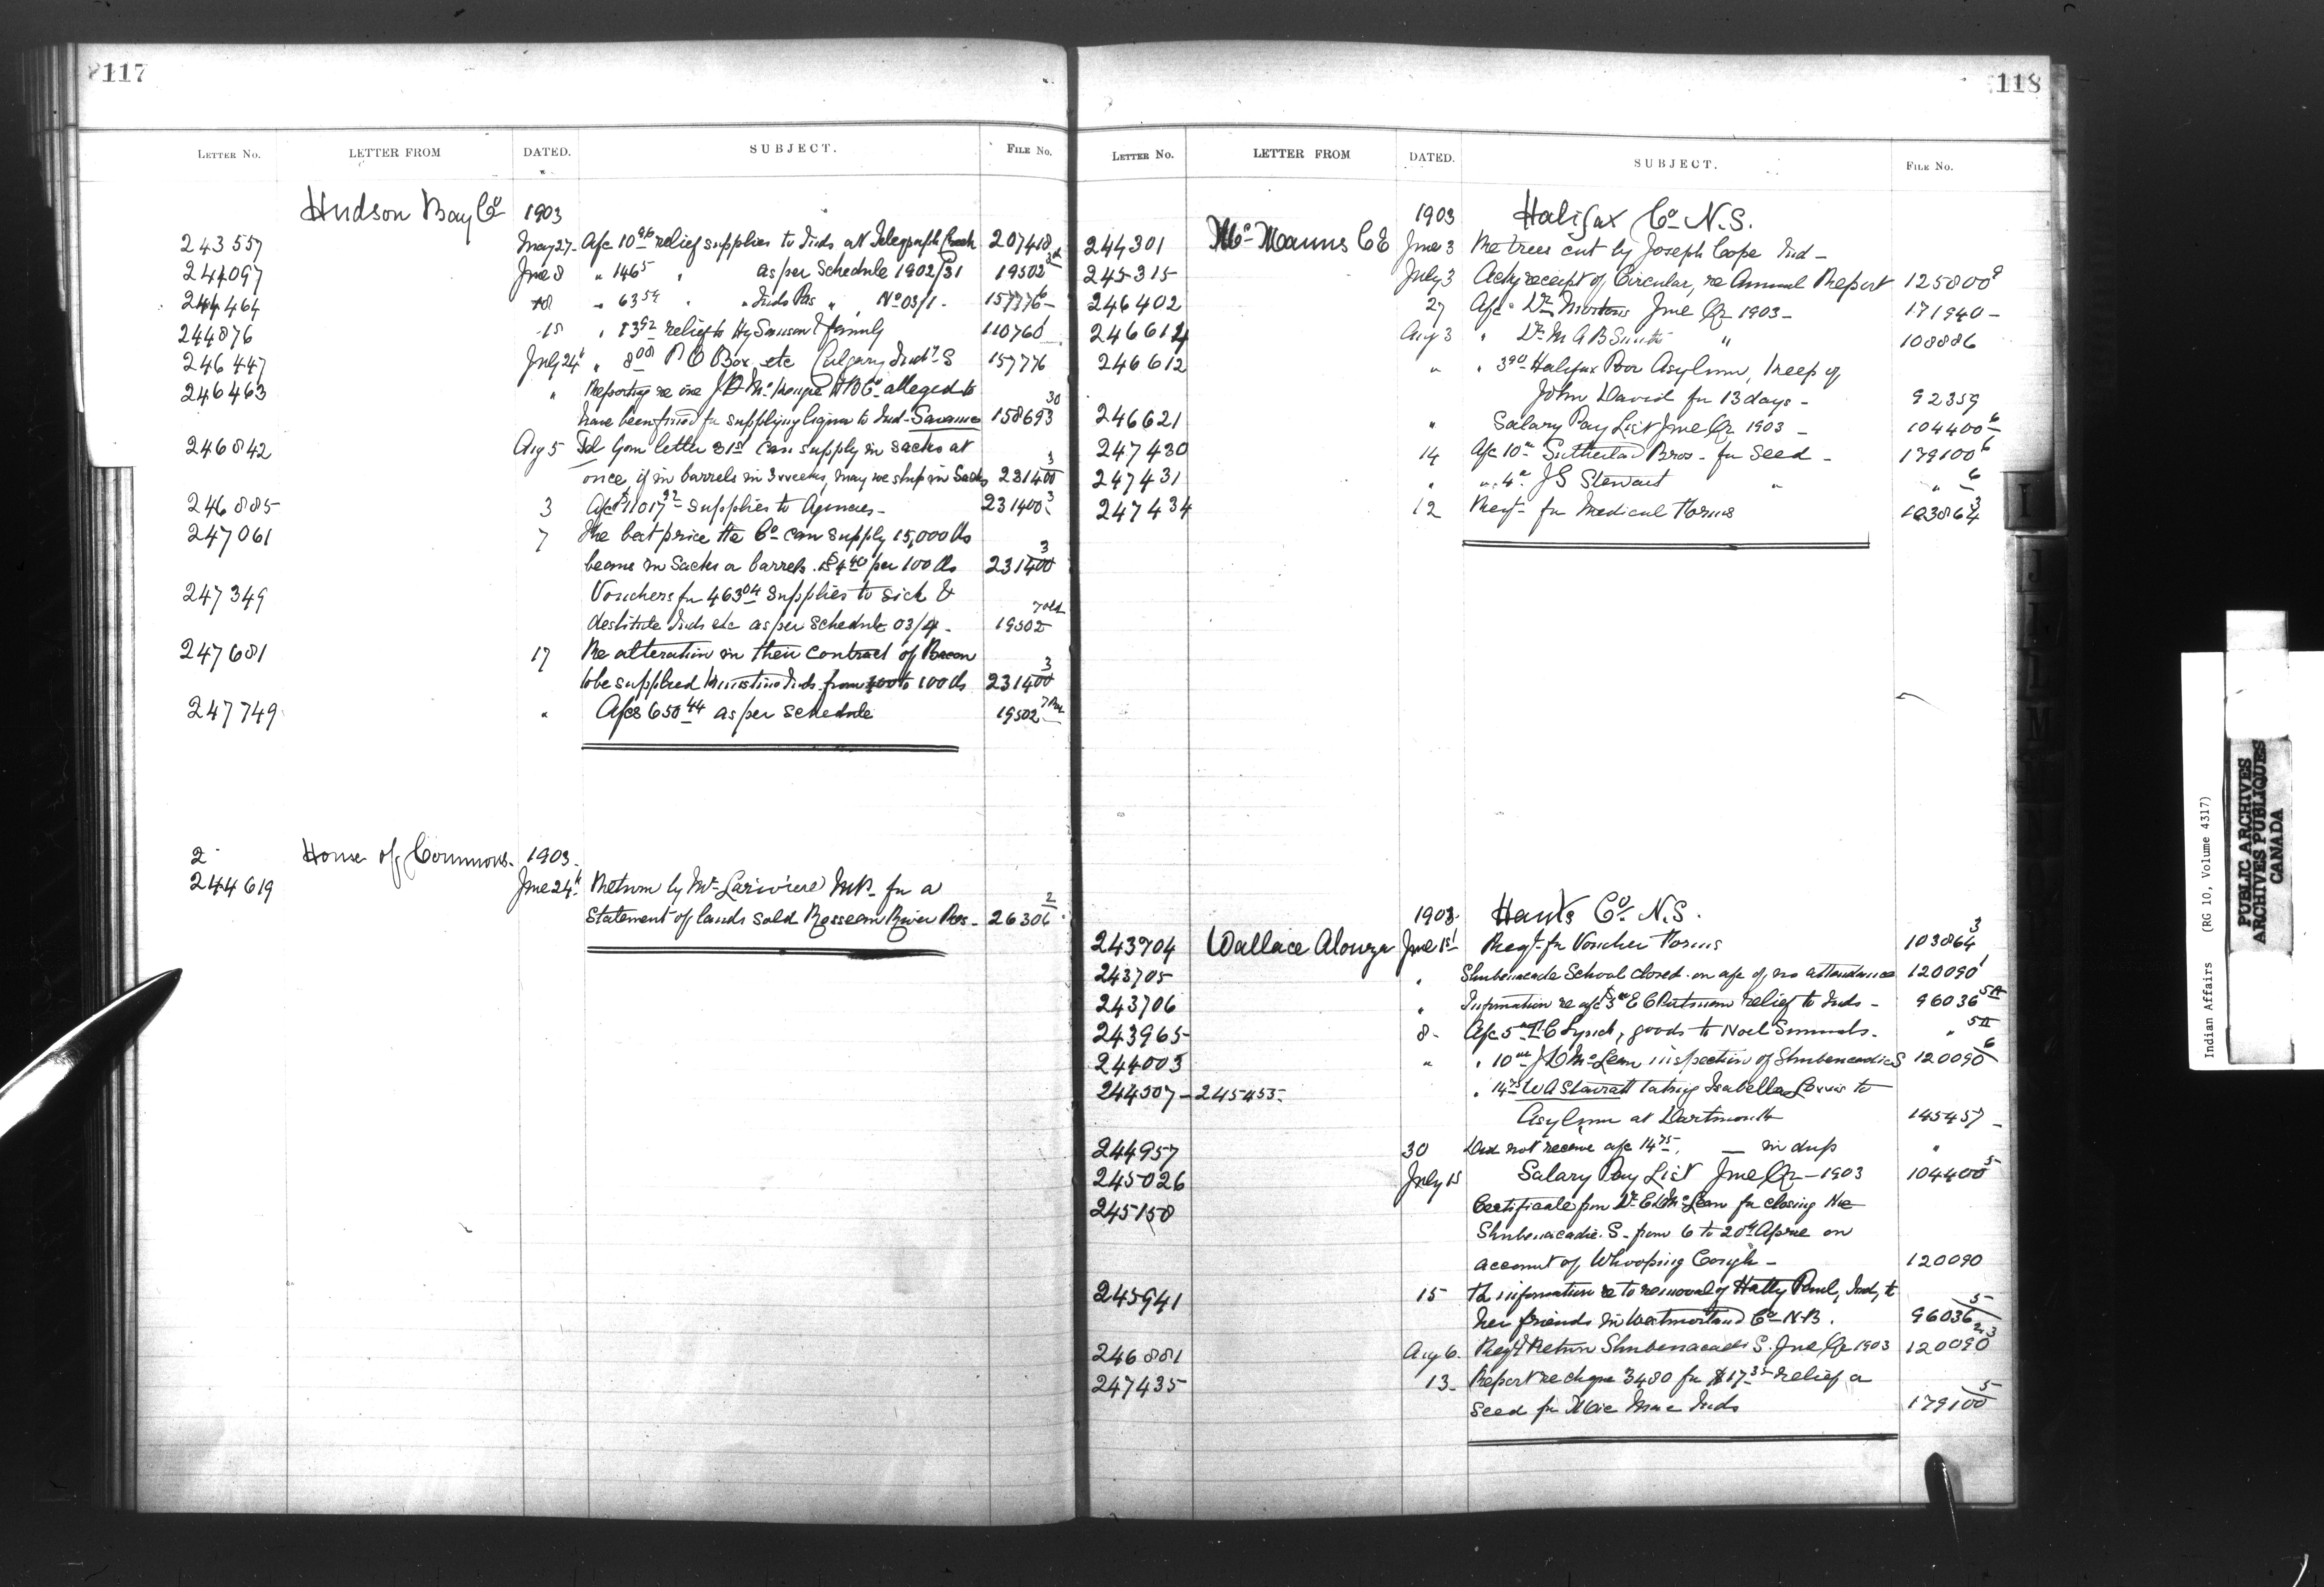 117
LETTER No. LETTER FROM DATED. SUBJECT. FILE No.
Hudson Bay Co 1903
243557 May 27 A/c 10 relief supplies to Inds. at Telegraph Creek 207418
244097 June 8 " 146 5 " as per Schedule 1902/31 19502
244464 18 " 63 54 " " Inds Pas " No 03/1 - 157776
244876 15 " 83 92 relief to Hy Samson & family 110760
246447 July 24 " 8 00 P O Box etc Calgary Indl S 157776
246463 " Reporting re one H B Co alleged to
have been fined for supplying liquor to Ind - Savanne 158693 30
246842 Aug 5 Tel Your letter 31st can supply in sacks at
once, if in barrels in 3 weeks, may we ship in Sacks 231400 3
246885 3 A/c $11017 supplies to Agencies - 231400 3
247061 7 The best price the Co can supply 15,000 lbs
beans in Sacks or barrels is $4 40 per 100 lbs 231400 3
247349 Vouchers for 463 04 supplies to sick &
destitute Inds etc as per Schedule 03/4 - 19502
247681 17 Re alteration in their contract of Bacon
to be supplied Inds from 400 to 100 lbs 231400 3
247749 " A/cs 650 44 as per schedule 19502
2 House of Commons - 1903
244619 June 24 Return by Mr Lariviere MP - for a
Statement of lands sold Rosseau River Res - 26306 2
118
LETTER No. LETTER FROM DATED. SUBJECT. FILE No.
1903 Halifax Co N.S.
244301 McManus C E June 3 Re trees cut by Joseph Cope Ind -
245315 July 3 Ackg receipt of Circular, re Annual Report 125800
246402 27 A/c Dr Mortons June Qr 1903 - 171940 -
246614 Aug 3 " Dr M A B Smith " 108886
246612 " " 3 90 Halifax Poor Asylum, keep of
John David for 13 days - 92359
246621 " Salary Pay List June Qr 1903 - 104400 6
247430 14 A/c 10 Sutherland Bros - for Seed - 179100 6
247431 " " 4 J S Stewart " " 6
247434 12 Reqn for Medical Forms 103864 3
1903 Hants Co N.S.
243704 Wallace Alonzo June 1st Reqn for Voucher Forms 103864 3
243705 " Shubenacadie School closed on a/c of no attendance 120090
243706 " Information re a/c $3 E C Putnam relief to Inds - 96036 5A
243965 8 - A/c 5 Lynch, goods to Noel Simmonds - " 5A
244003 " " 10 J D McLean inspection of Shubenacadie S 120090 6
244507 - 245455 " 14 75 W A Starratt taking Isabella Lewis to
Asylum at Dartmouth 145457 -
244957 30 Did not receive a/c 14 75. — in dup "
245026 July 15 Salary Pay List June Qr - 1903 104400 5
245150 Certificate from Dr McLean for closing the
Shubenacadie S. from 6 to 20th April on
account of Whooping Cough - 120090
245941 15 information re to removal of Hatty Paul, Ind, to
her friends in Westmorland Co N-B. 96036 5
246881 Aug 6. Return Shubenacadie S. June Qr 1903 120090
247435 13 - Report re cheque 3480 for $17 35 relief a
seed for Mic Mac Inds 179100 5
I
J
M
Indian Affairs (RG 10, Volume 4317)
PUBLIC ARCHIVES
ARCHIVES PUBLIQUES
CANADA